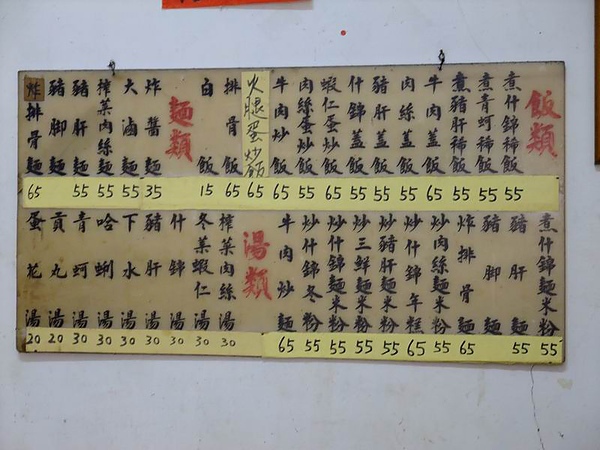 飯類
煮什錦稀飯 55
煮青蚵稀飯 55
煮豬肝稀飯 55
牛肉蓋飯 65
肉絲蓋飯 55
豬肝蓋飯 55
什錦蓋飯 55
蝦仁蛋炒飯 65
肉絲蛋炒飯 55
牛肉炒飯 65
火腿蛋炒飯 65
排骨飯 65
白飯 15
麵類
炸醬麵 35
大滷麵 55
榨菜肉絲麵 55
豬肝麵 55
豬腳麵
炸排骨麵 65
煮什錦麵米粉 55
豬肝麵 55
豬腳麵
炸排骨麵 65
炒肉絲麵米粉 55
炒什錦年糕 65
炒豬肝麵米粉 55
炒三鮮麵米粉 55
炒什錦麵米粉 55
炒什錦冬粉 55
牛肉炒麵 65
湯類
榨菜肉絲湯 30
冬菜蝦仁湯 30
什錦湯 30
豬肝湯 30
下水湯 30
哈蜊湯 30
青蚵湯 30
貢丸湯 20
蛋花湯 20